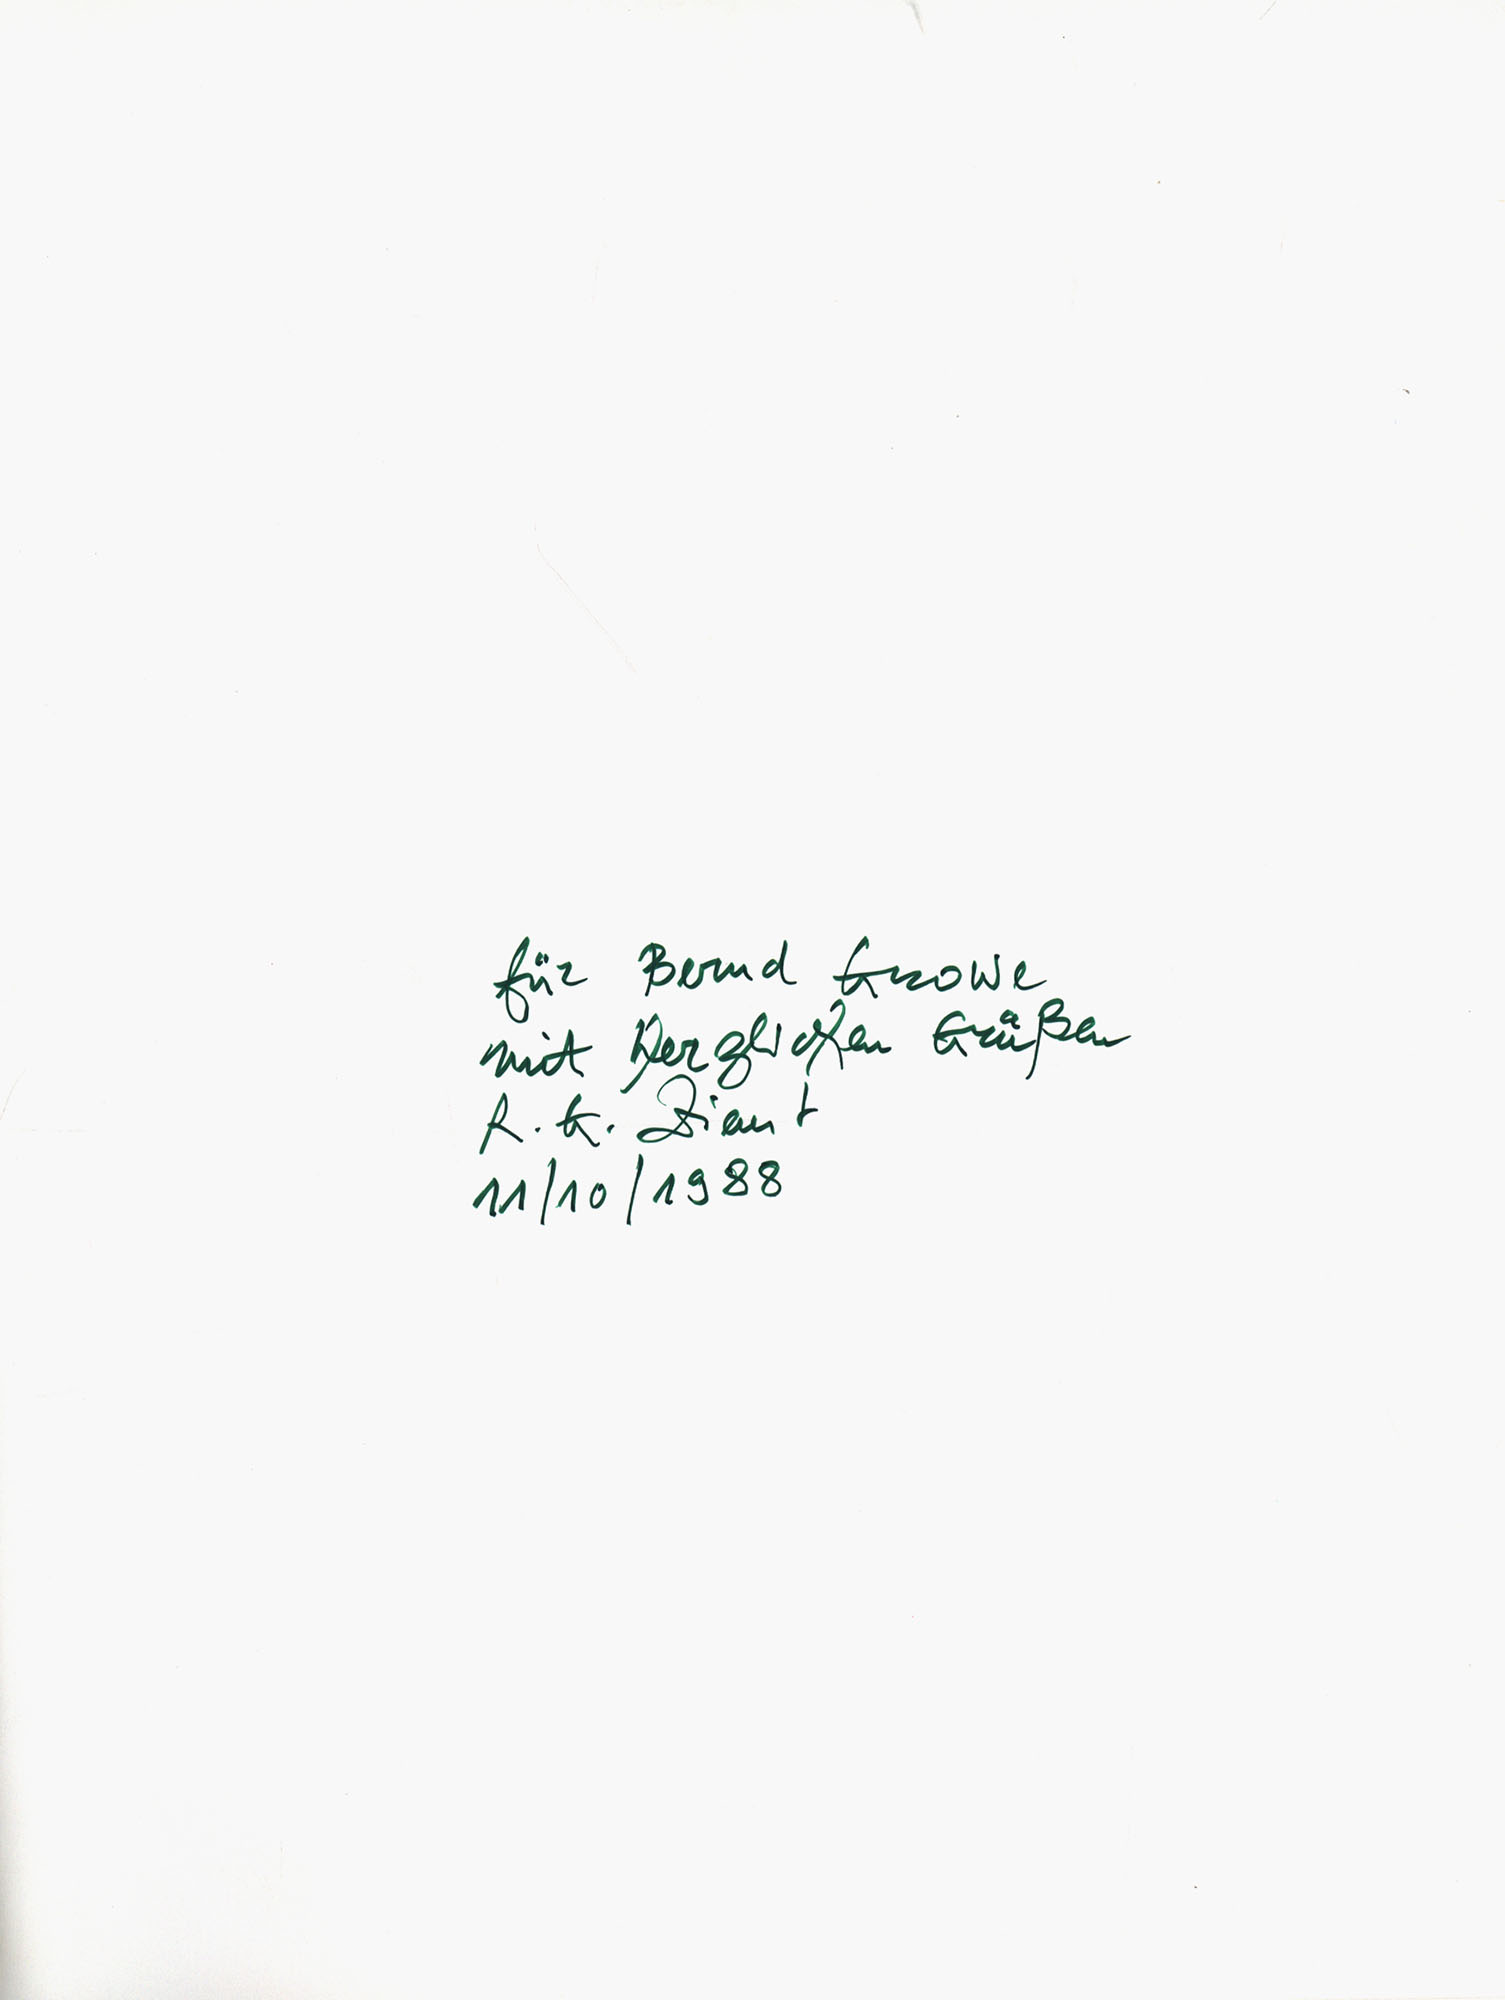 für Bernd Growe
mit herzlichen Grüßen
R. G. Dienst
11/10/1988